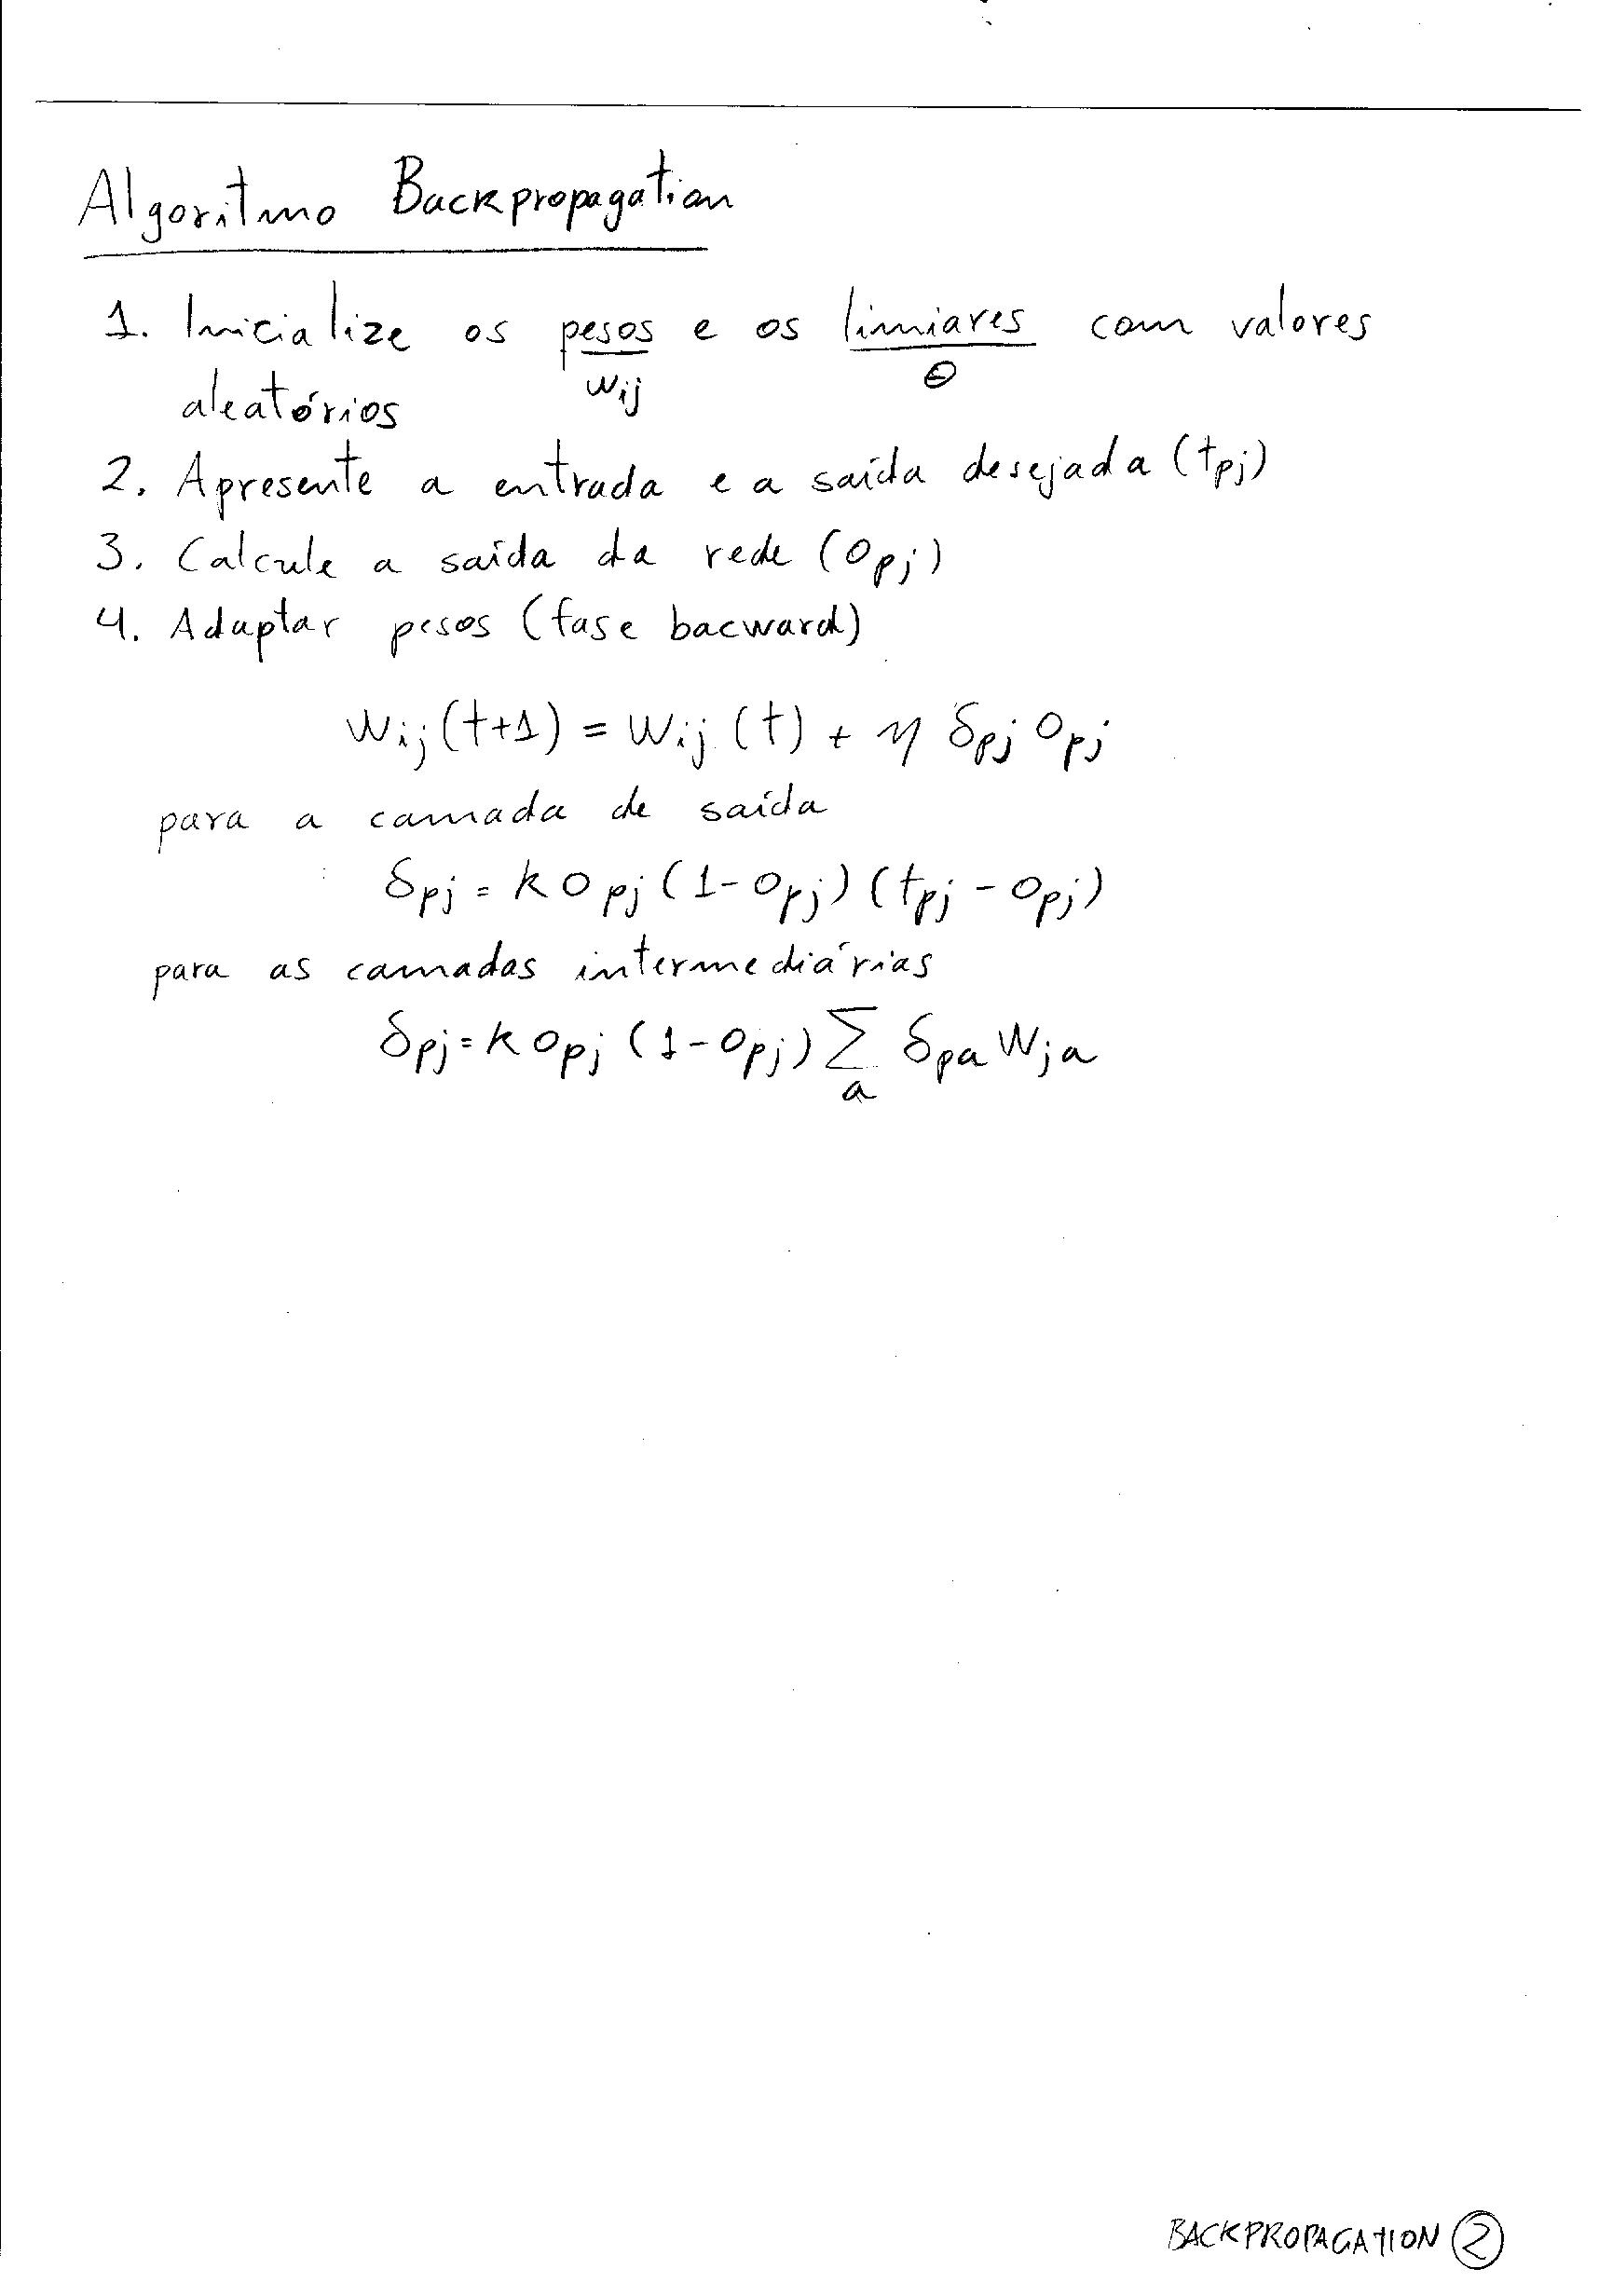 Algoritmo Backpropagation
1. Inicialize os pesos e os limiares com valores
wij θ
aleatórios
2. Apresente a entrada e a saída desejada (tpj)
3. Calcule a saída da rede (opj)
4. Adaptar pesos (fase bacward)
wij(t+1) = wij(t) + η δpj opj
para a camada de saída
δpj = k opj (1-opj) (tpj - opj)
para as camadas intermediárias
δpj = k opj (1-opj) Σ δpa wja
a
BACKPROPAGATION 2